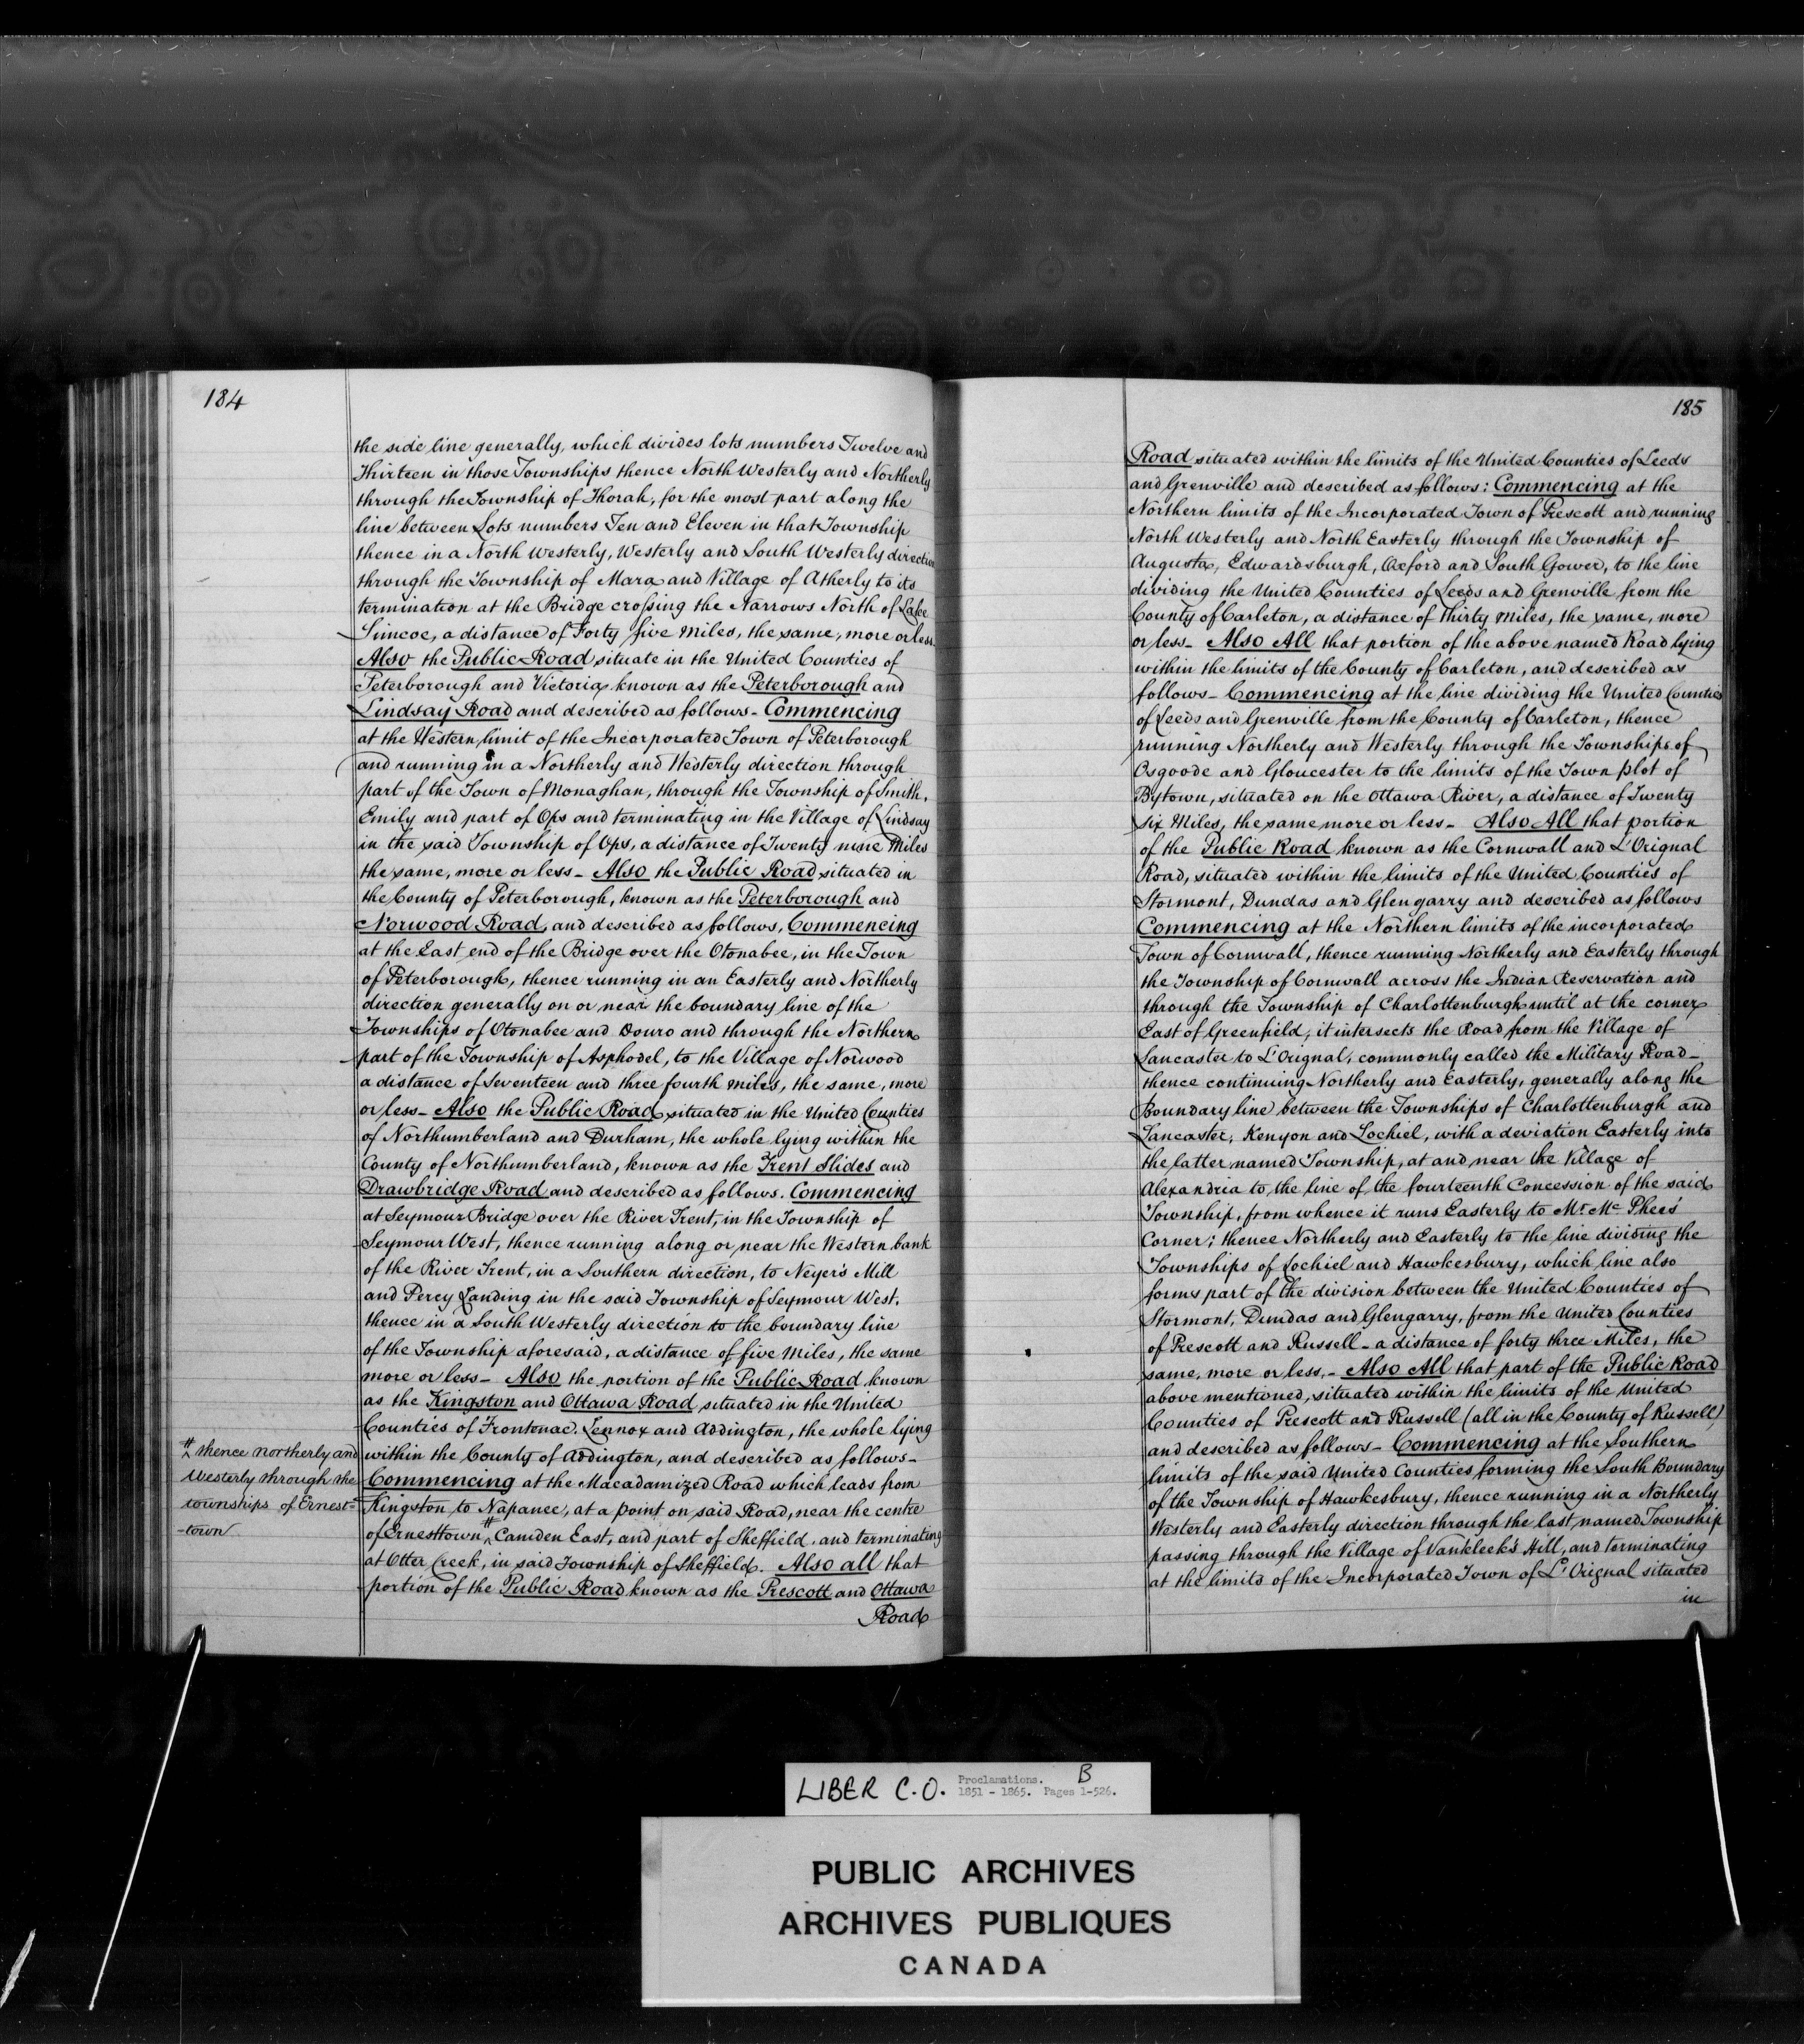 184
the side line generally, which divides lots numbers Twelve and
Thirteen in those Townships thence North Westerly and Northerly
through the Township of Thorah, for the most part along the
line between Lots numbers Ten and Eleven in that Township
thence in a North Westerly, Westerly and South Westerly direction
through the Township of Mara and Village of Atherly to its
termination at the Bridge crossing the Narrows North of Lake
Simcoe, a distance of Forty five Miles, the same, more or less.
Also the Public Road situate in the United Counties of
Peterborough and Victoria known as the Peterborough and
Lindsay Road and described as follows - Commencing
at the Western limit of the Incorporated Town of Peterborough
and running in a Northerly and Westerly direction through
part of the Town of Monaghan, through the Township of Smith,
Emily and part of Ops and terminating in the Village of Lindsay
in the said Township of Ops, a distance of Twenty nine Miles
the same, more or less - Also the Public Road situated in
the County of Peterborough, known as the Peterborough and
Norwood Road, and described as follows, Commencing
at the East end of the Bridge over the Otonabee, in the Town
of Peterborough, thence running in an Easterly and Northerly
direction generally on or near the boundary line of the
Townships of Otonabee and Douro and through the Northern
part of the Township of Asphodel, to the Village of Norwood
a distance of Seventeen and three fourth miles, the same, more
or less - Also the Public Road situated in the United Counties
of Northumberland and Durham, the whole lying within the
County of Northumberland, known as the Trent Slides and
Drawbridge Road and described as follows. Commencing
at Seymour Bridge over the River Trent, in the Township of
Seymour West, thence running along or near the Western bank
of the River Trent, in a Southern direction, to Neyer's Mill
and Percy Landing in the said Township of Seymour West.
thence in a South Westerly direction to the boundary line
of the Township aforesaid, a distance of five Miles, the same
more or less - Also the portion of the Public Road known
as the Kingston and Ottawa Road situated in the United
Counties of Frontenac. Lennox and Addington, the whole lying
within the County of Addington, and described as follows -
Commencing at the Macadamized Road which leads from
Kingston to Napanee, at a point on said Road, near the centre
of Ernesttown # Camden East, and part of Sheffield, and terminating
at Otter Creek, in said Township of Sheffield. Also all that
portion of the Public Road known as the Prescott and Ottawa
Road
# thence northerly and
Westerly through the
townships of Ernest=
-town
185
Road situated within the limits of the United Counties of Leeds
and Grenville and described as follows: Commencing at the
Northern limits of the Incorporated Town of Prescott and running
North Westerly and North Easterly through the Township of
Augusta, Edwardsburgh, Oxford and South Gower, to the line
dividing the United Counties of Leeds and Grenville from the
County of Carleton, a distance of Thirty Miles, the same, more
or less - Also All that portion of the above named Road lying
within the limits of the County of Carleton, and described as
follows - Commencing at the line dividing the United Counties
of Leeds and Grenville from the County of Carleton, thence
running Northerly and Westerly through the Townships of
Osgoode and Gloucester to the limits of the Town plot of
Bytown, situated on the Ottawa River, a distance of Twenty
six Miles, the same more or less - Also All that portion
of the Public Road known as the Cornwall and L'Orignal
Road, situated within the limits of the United Counties of
Stormont, Dundas and Glengarry and described as follows
Commencing at the Northern limits of the incorporated
Town of Cornwall, thence running Northerly and Easterly through
the Township of Cornwall across the Indian Reservation and
through the Township of Charlottenburgh until at the corner
East of Greenfield, it intersects the Road from the Village of
Lancaster to L'Orignal, commonly called the Military Road -
thence continuing Northerly and Easterly, generally along the
Boundary line between the Townships of Charlottenburgh and
Lancaster, Kenyon and Lochiel, with a deviation Easterly into
the latter named Township, at and near the Village of
Alexandria to the line of the fourteenth Concession of the said
Township, from whence it runs Easterly to Mr. Mc Phee's
Corner; thence Northerly and Easterly to the line dividing the
Townships of Lochiel and Hawkesbury, which line also
forms part of the division between the United Counties of
Stormont, Dundas and Glengarry, from the United Counties
of Prescott and Russell - a distance of forty three Miles, the
same, more or less. - Also All that part of the Public Road
above mentioned, situated within the limits of the United
Counties of Prescott and Russell (all in the County of Russell)
and described as follows - Commencing at the Southern
limits of the said United Counties forming the South Boundary
of the Township of Hawkesbury, thence running in a Northerly
Westerly and Easterly direction through the last named Township
passing through the Village of Vankleek's Hill, and terminating
at the limits of the Incorporated Town of L'Orignal situated
in
LIBER C.O. Proclamations. B
1851 - 1865. Pages 1-526.
PUBLIC ARCHIVES
ARCHIVES PUBLIQUES
CANADA